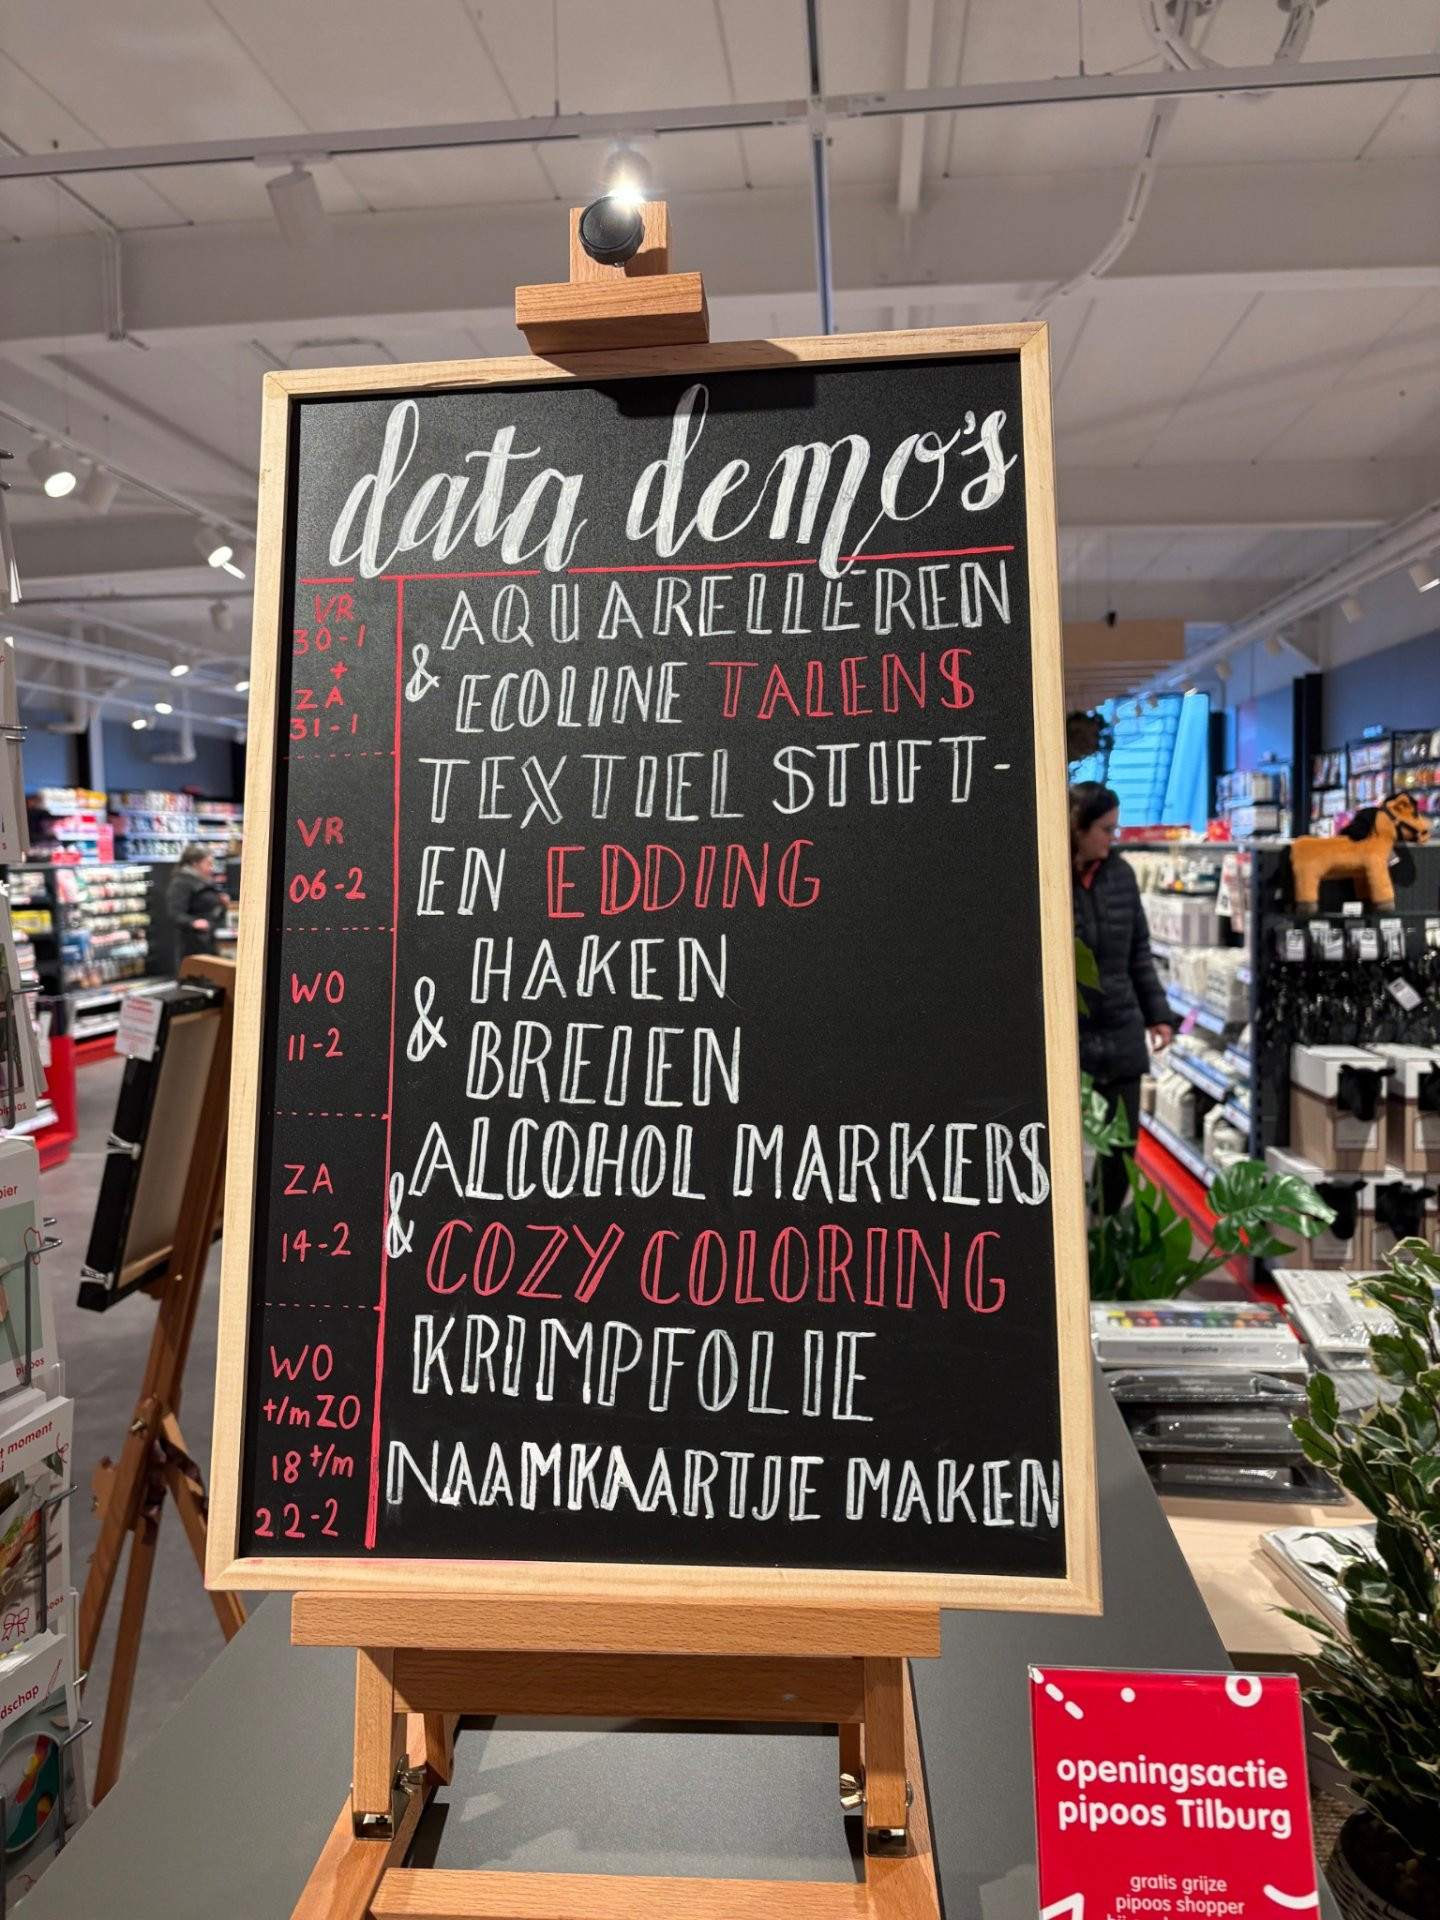 data demo's
VR
30-1
+
ZA
31-1
AQUARELLEREN
& ECOLINE TALENS
VR
06-2
TEXTIEL STIFT-
EN EDDING
WO
11-2
HAKEN
& BREIEN
ZA
14-2
ALCOHOL MARKERS
& COZY COLORING
WO
t/m ZO
18 t/m
22-2
KRIMPFOLIE
NAAMKAARTJE MAKEN
openingsactie
pipoos Tilburg
gratis grijze
pipoos shopper
t moment
dschap
pipoos